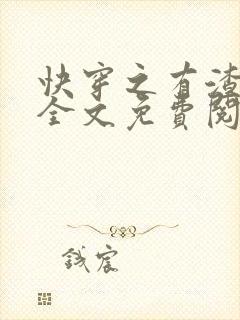 快穿之有渣
全文免費閱
钱宸